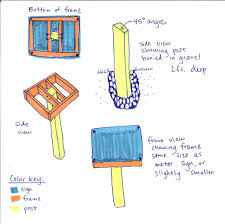 Bottom of frame
45° angle
side view
showing post
buried in gravel
2ft. deep
side
view
front view
showing frame
same size as
metal sign, or
slightly smaller
Color key:
sign
frame
post